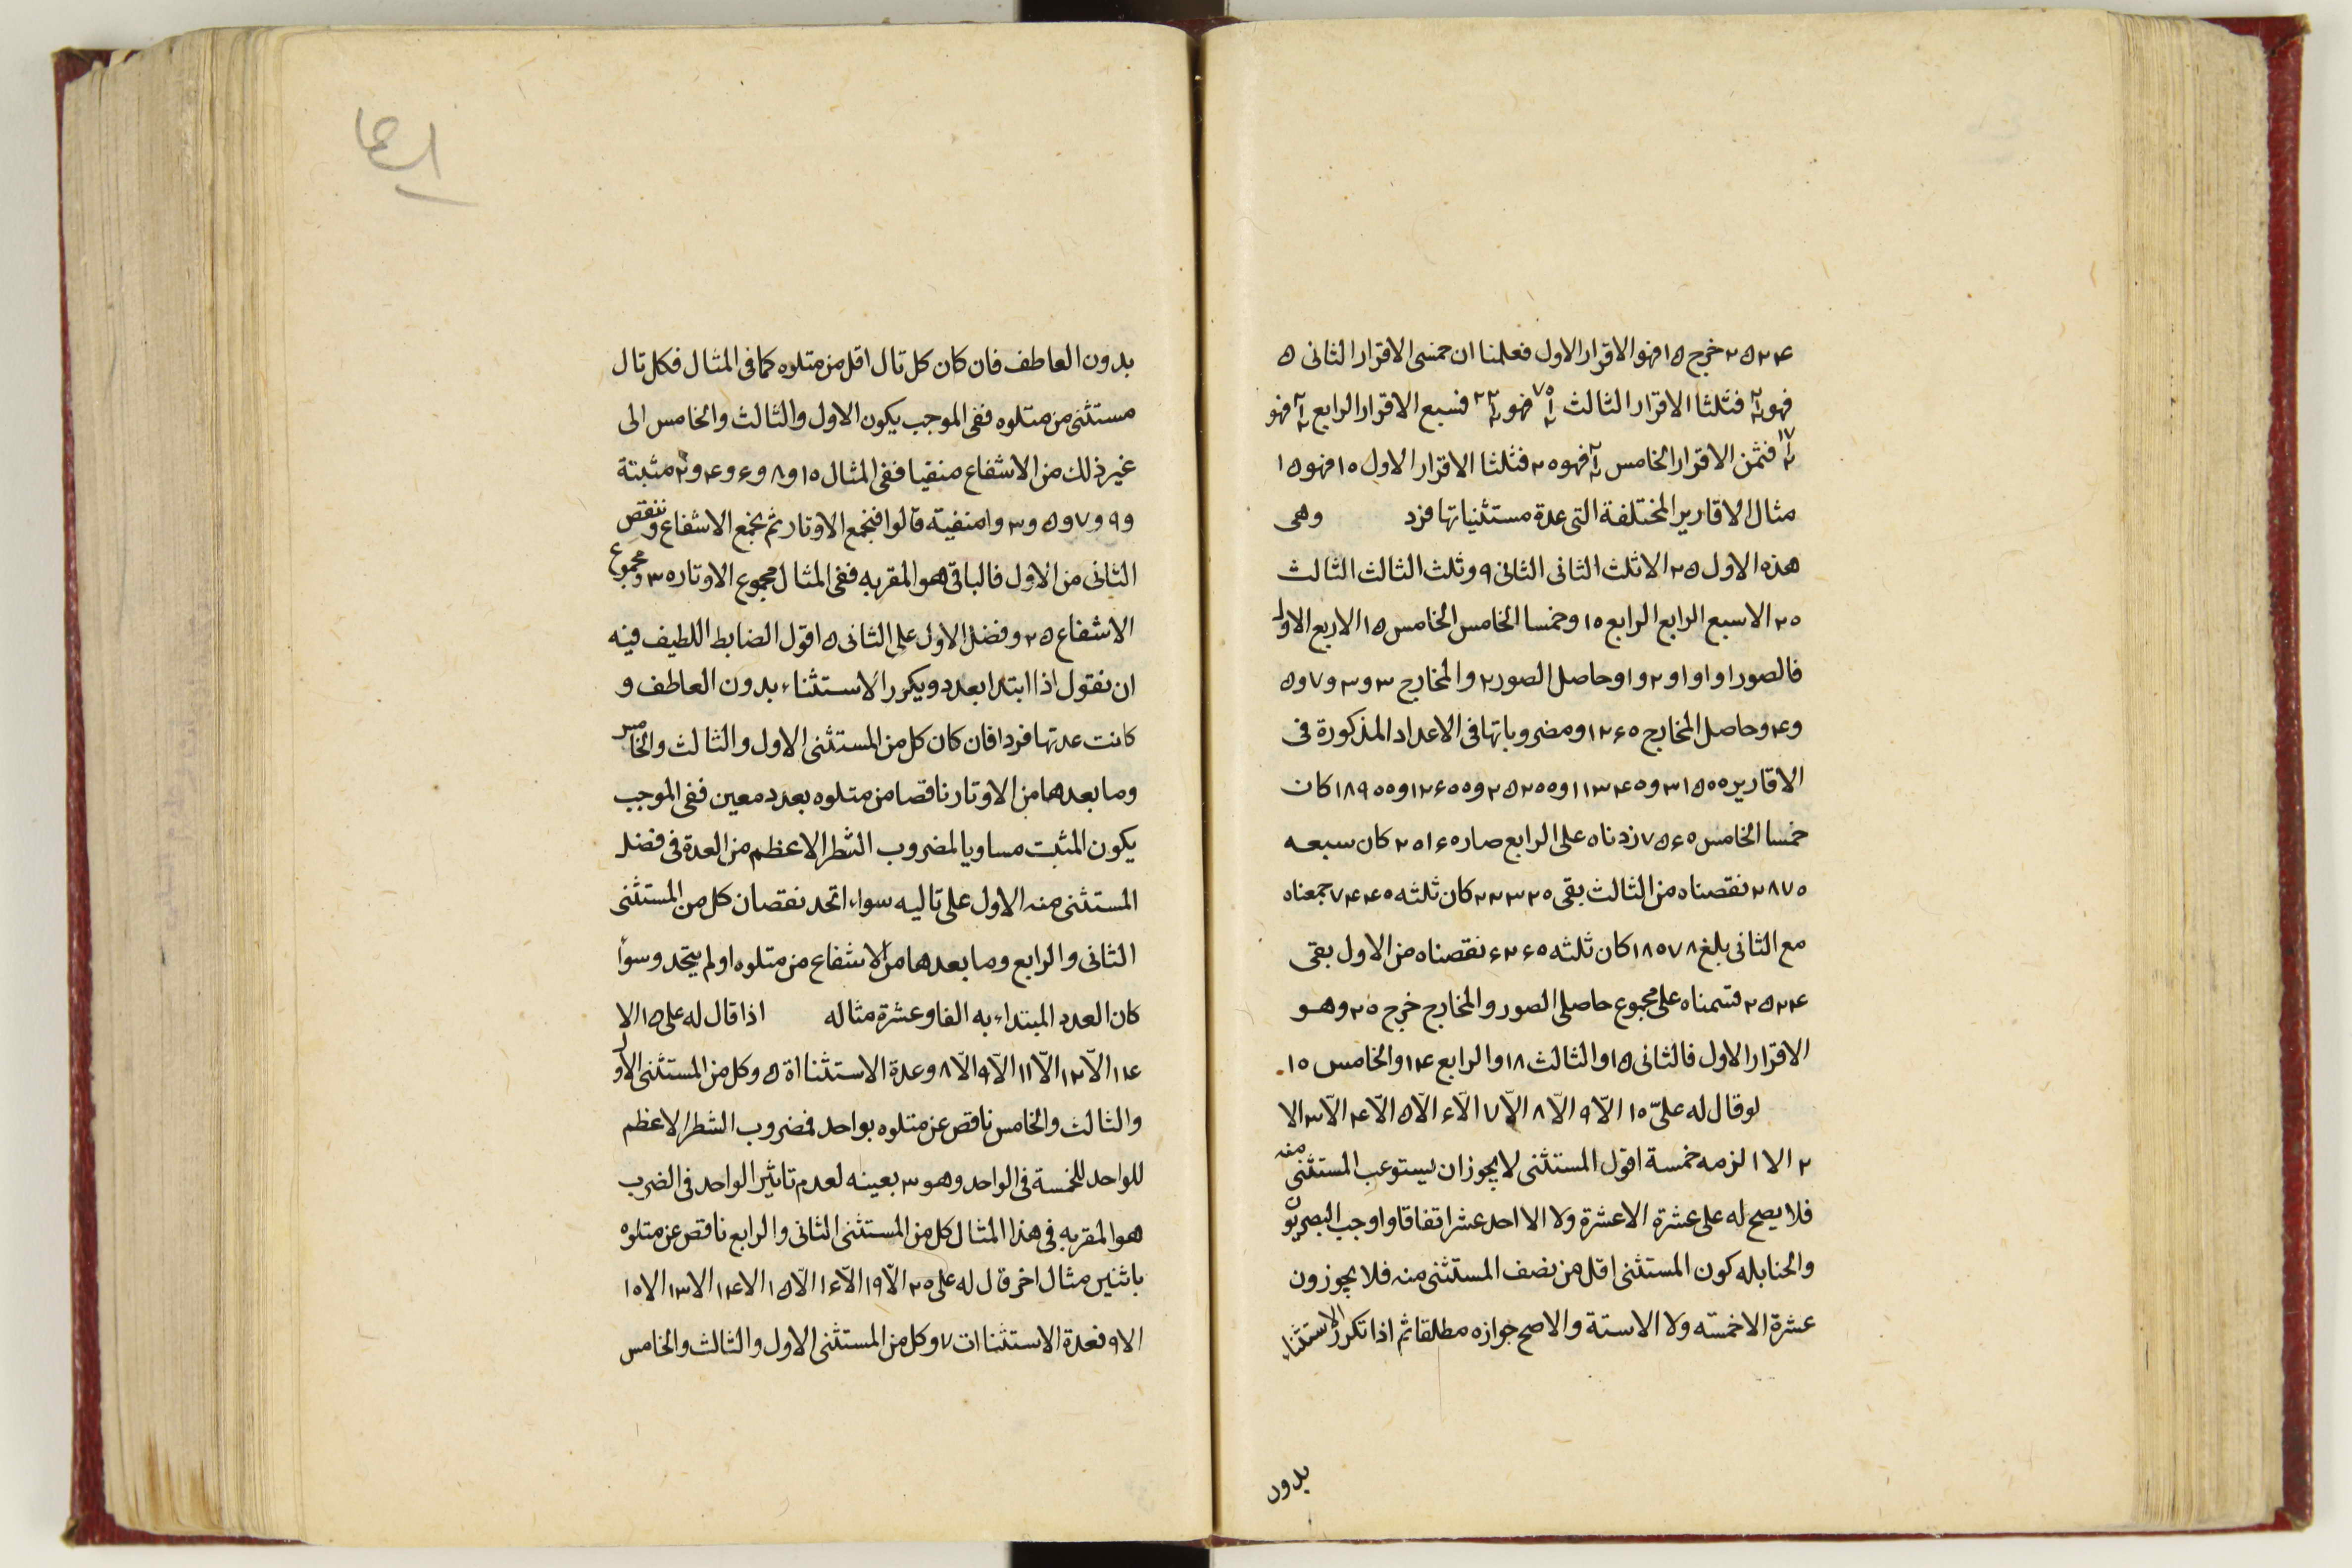 ۲۵۲۴ خرج ۱۵ فهو الاقرار الاول فعلمنا ان خمسى الاقرار الثانى ۵
فثلثا الاقرار الثالث فهو فسبع الاقرار الرابع فهو
فثمن الاقرار الخامس فهو ۲۰ فثلثا الاقرار الاول ۱۰ فهو ۱۵
مثال الاقارير المختلفة التى عدة مستثنياتها فرد وهى
هذه الاول ۲۵ الا ثلث الثانى الثانى ۹ وثلث الثالث الثالث
۲۰ الا سبع الرابع الرابع ۱۰ وخمسا الخامس الخامس ۱۵ الا ربع الاول
فالصور ۱ و ۱ و ۱ و ۲ و ۱ وحاصل الصور ۲ والمخارج ۳ و ۳ و ۷ و ۵
و ۴ وحاصل المخارج ۱۲۶۰ ومضروباتها فى الاعداد المذكورة فى
الاقارير ۳۱۵۰۰ و ۱۱۳۴۰ و ۲۵۲۰۰ و ۱۲۶۰۰ و ۱۸۹۰۰ كان
خمسا الخامس ۷۵۶۰ زدناه على الرابع صار ۲۰۱۶۰ كان سبعه
۲۸۷۰ نقصناه من الثالث بقى ۲۲۳۲۰ كان ثلثه ۷۴۴۰ جمعناه
مع الثانى بلغ ۱۸۰۷۸ كان ثلثه ۶۲۶۰ نقصناه من الاول بقى
۲۵۲۴ قسمناه على مجموع حاصلى الصور والمخارج خرج ۲۰ وهو
الاقرار الاول فالثانى ۱۵ والثالث ۱۸ والرابع ۱۴ والخامس ۱۰
لو قال له علىّ ۱۰ الّا ۹ الّا ۸ الّا ۷ الّا ۶ الّا ۵ الّا ۴ الّا ۳ الا
۲ الا ۱ لزمه خمسة اقول المستثنى لا يجوز ان يستوعب المستثنى منه
فلا يصح له على عشرة الا عشرة ولا الا احد عشر اتفاقا واوجب البصريون
والحنابله كون المستثنى اقل من نصف المستثنى منه فلا يجوزون
عشرة الا خمسته ولا الا ستة والاصح جوازه مطلقا ثم اذا تكرر الاستثناء
بدون
بدون العاطف فان كان كل تال اقل من متلوه كما فى المثال فكل تال
مستثنى من متلوه ففى الموجب يكون الاول والثالث والخامس الى
غير ذلك من الاشفاع منفيا ففى المثال ۱۰ و ۸ و ۶ و ۴ و ۲ مثبتة
و ۹ و ۷ و ۵ و ۳ و ۱ منفية قالوا فنجمع الاوتار ثم نجمع الاشفاع وننقص
الثانى من الاول فالباقى هو المقر به ففى المثال مجموع الاوتار ۳۰ ومجموع
الاشفاع ۲۵ وفضل الاول على الثانى ۵ اقول الضابط اللطيف فيه
ان نقول اذا ابتدا بعدد ويكرر الاستثناء بدون العاطف و
كانت عدتها فردا فان كان كل من المستثنى الاول والثالث والخامس
وما بعدها من الاوتار ناقصا من متلوه بعدد معين ففى الموجب
يكون المثبت مساويا لمضروب الشطر الاعظم من العدة فى فضل
المستثنى منه الاول على تاليه سواء اتحد نقصان كل من المستثنى
الثانى والرابع وما بعدها من الاشفاع من متلوه او لم يتحد وسواء
كان العدد المبتداء به الفا و عشرة مثاله اذا قال له على ۱۵ الا
۱۴ الّا ۱۲ الّا ۱۱ الّا ۹ الّا ۸ وعدة الاستثنااة ۵ وكل من المستثنى الاول
والثالث والخامس ناقص عن متلوه بواحد فمضروب الشطر الاعظم
للواحد للخمسة فى الواحد وهو ۳ بعينه لعدم تاثير الواحد فى الضرب
هو المقر به فى هذا المثال كل من المستثنى الثانى والرابع ناقص عن متلوه
باثنين مثال اخر قال له على ۲۰ الّا ۱۹ الّا ۱۶ الّا ۱۵ الا ۱۴ الا ۱۳ الا ۱۰
الا ۹ فعدة الاستثناات ۷ وكل من المستثنى الاول والثالث والخامس